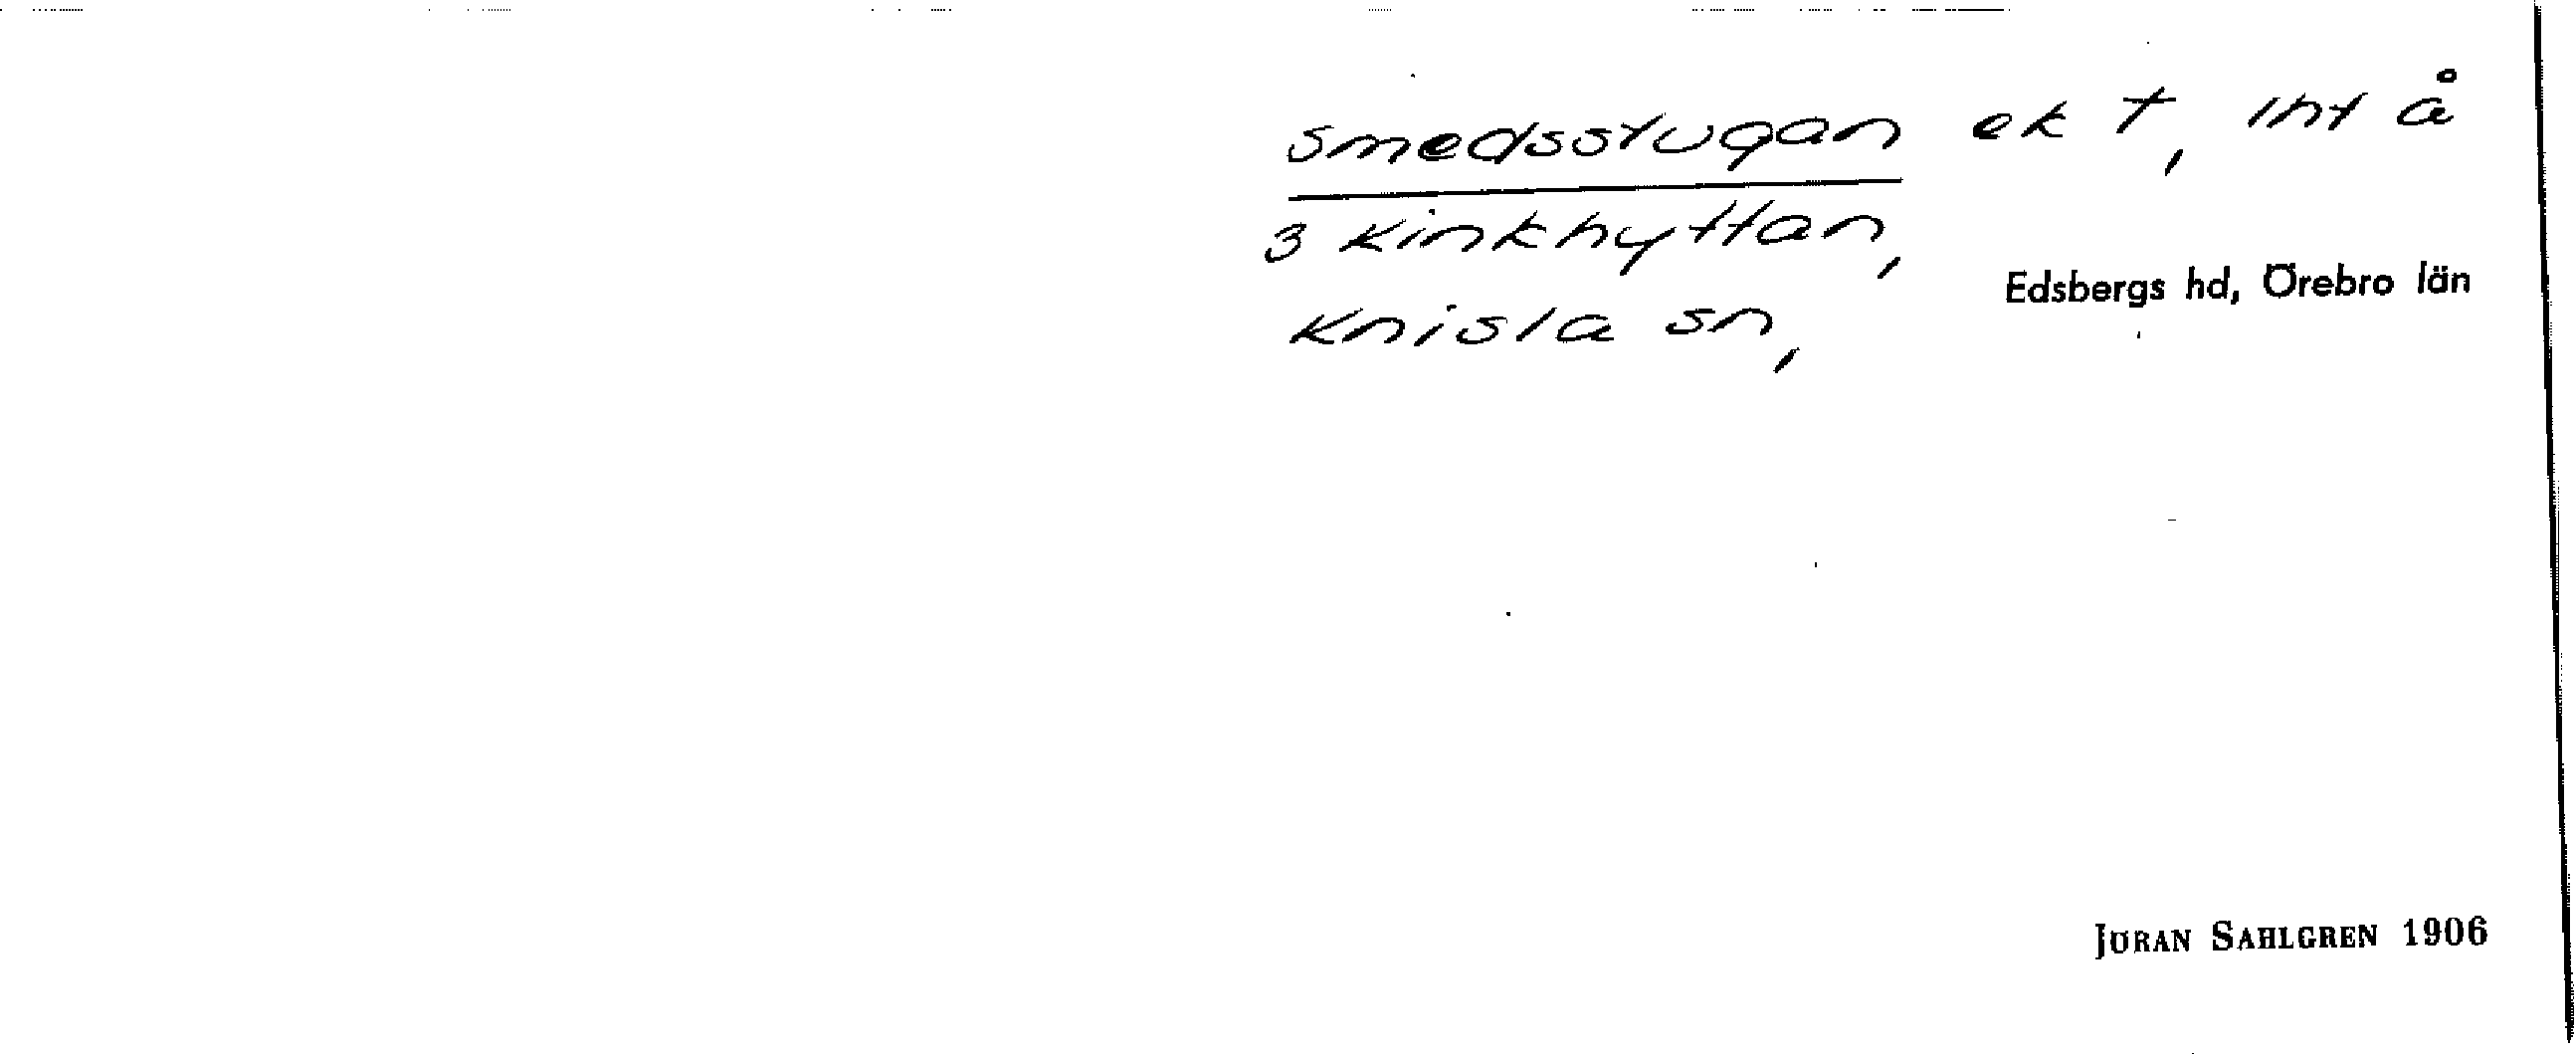 Smedsstugan ek t, int å
3 Kinkhyttan,
Knisla sn,
Edsbergs hd, Örebro län
JÖRAN SAHLGREN 1906